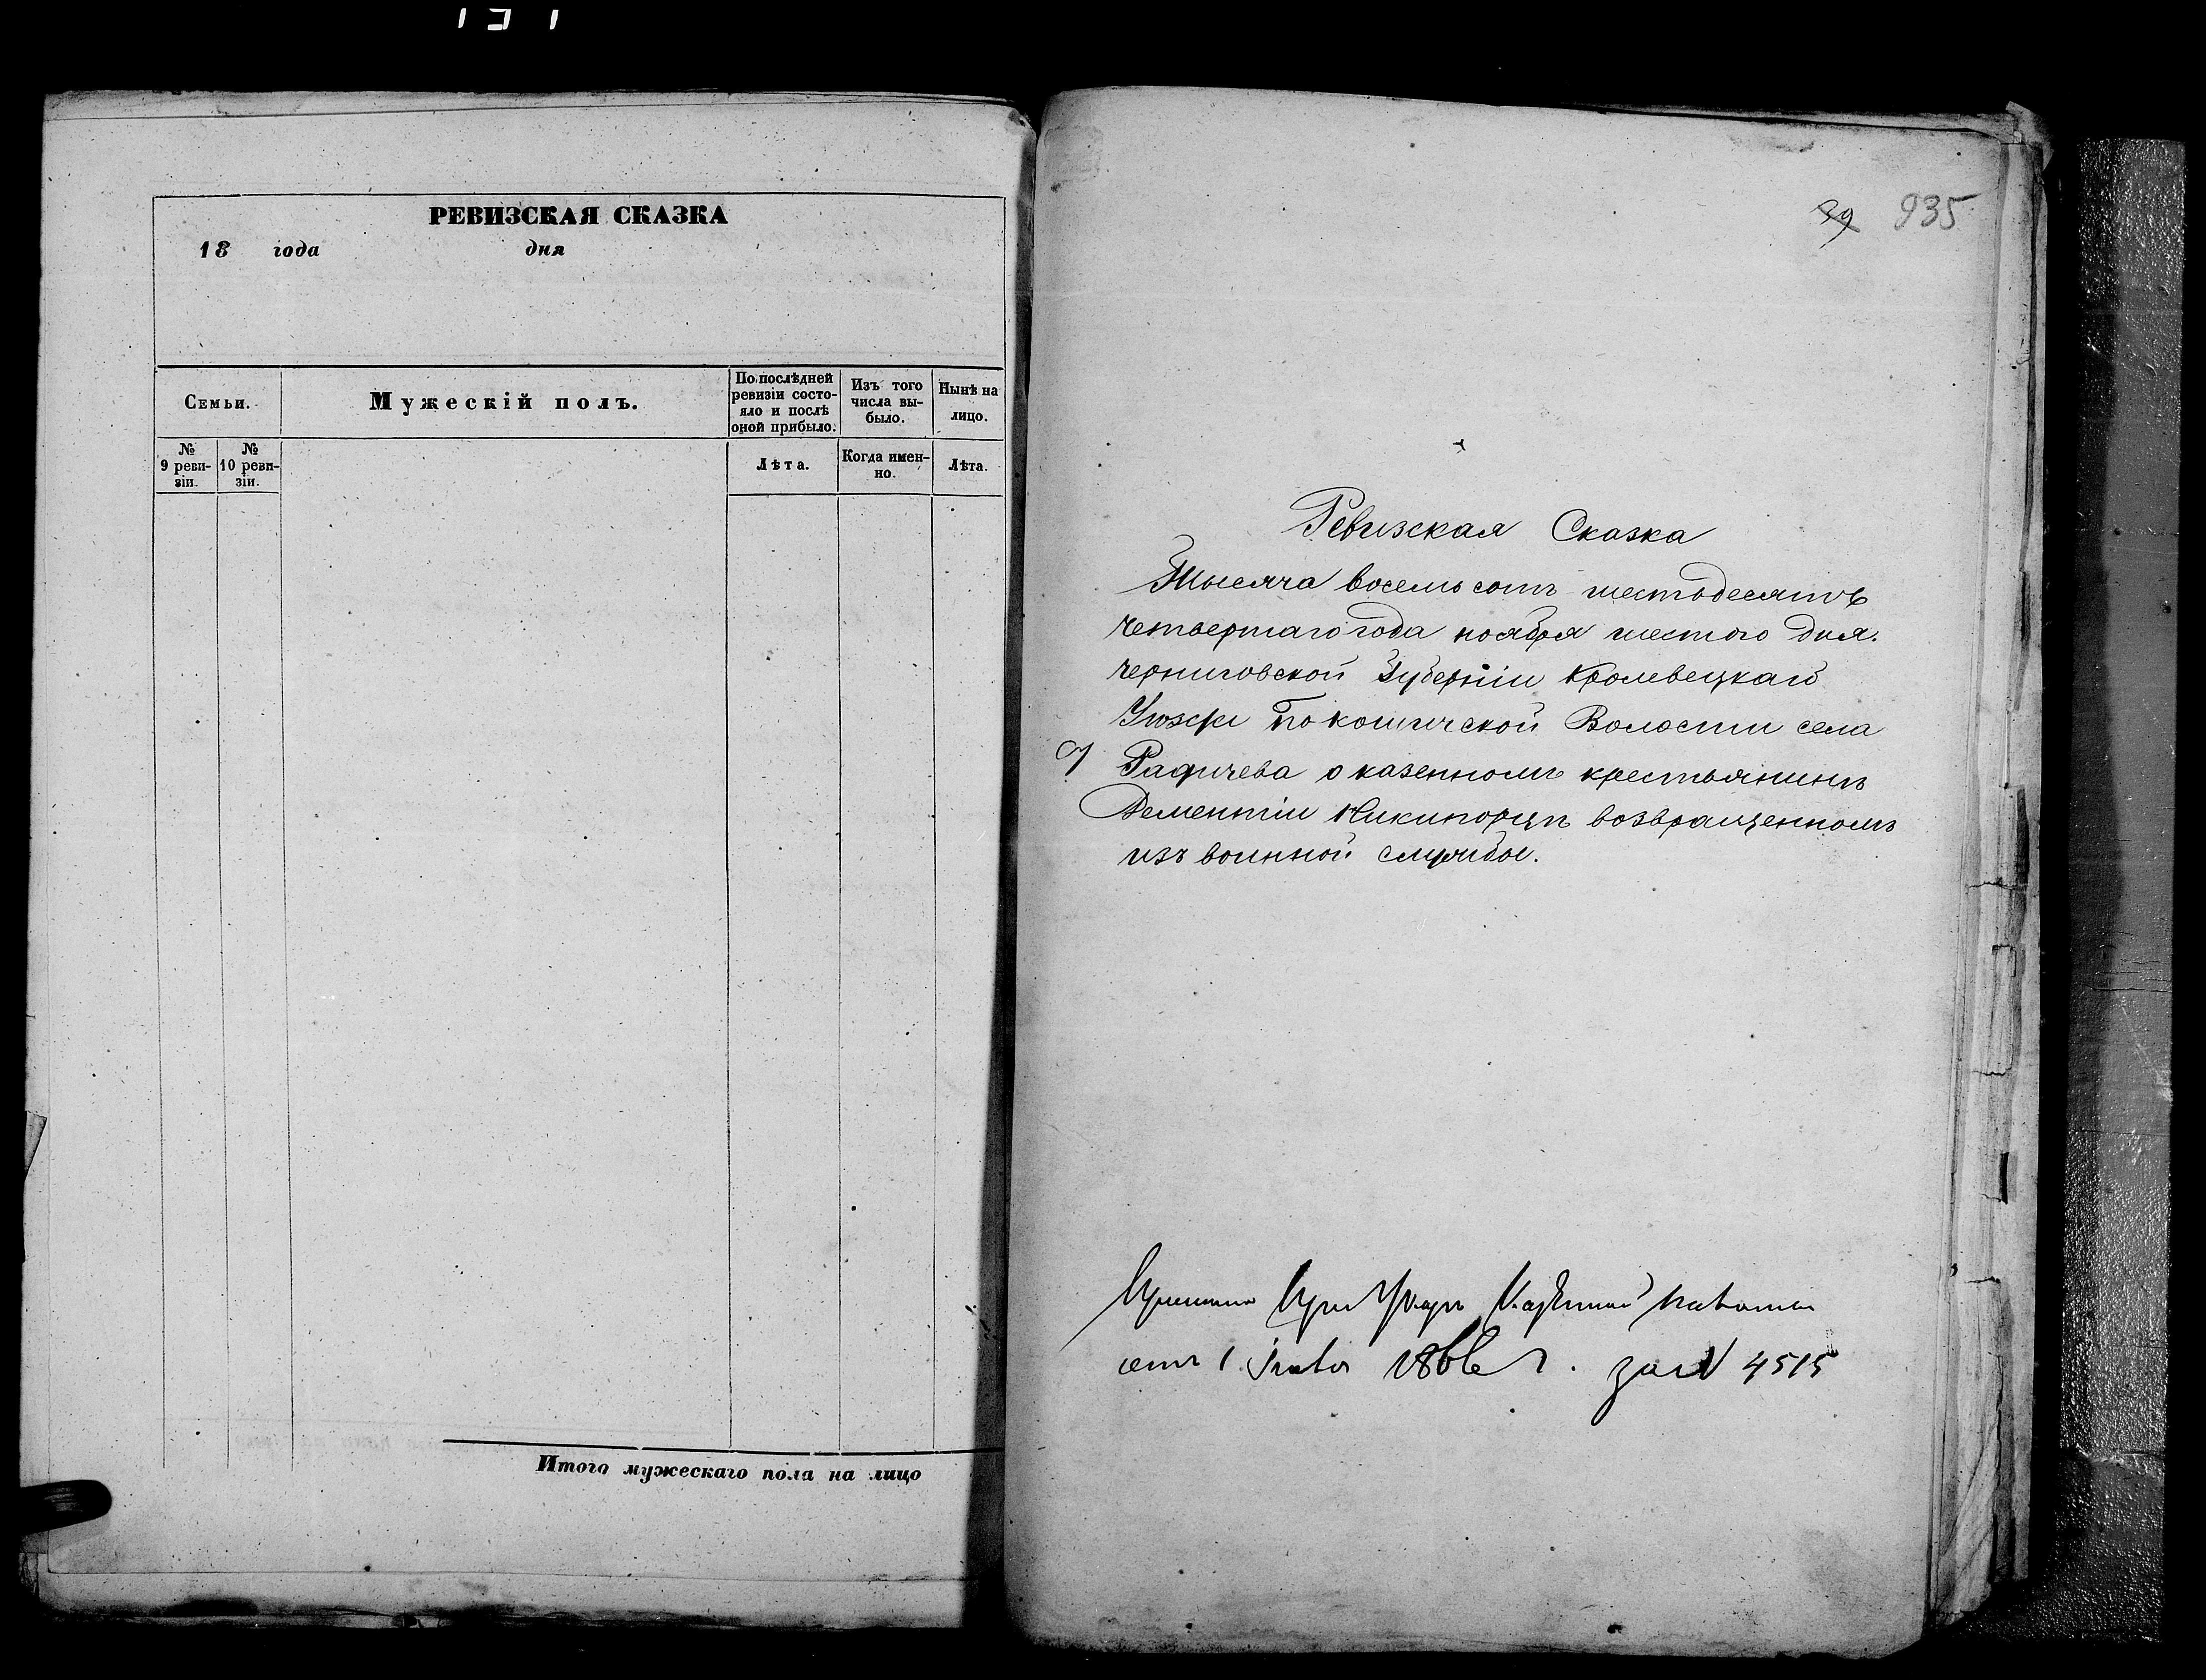 РЕВИЗСКАЯ СКАЗКА
18 года дня
Семьи.
Мужескій полъ.
По послѣдней
ревизіи состо-
яло и послѣ
оной прибыло.
Изъ того
числа вы-
было.
Нынѣ на
лицо.
№
9 реви-
зіи.
№
10 реви-
зіи.
Лѣта.
Когда имен-
но.
Лѣта.
Итого мужескаго пола на лицо
39 935
Ревизская Сказка
Тысяча восемьсотъ шестодесятъ
четвертаго года ноября шестого дня.
черниговской Губерніи Кролевецкаго
Уѣзда Покошичской Волости села
Радичева о казенномъ крестьянинѣ
Дементіи Никипорцѣ возвращенномъ
изъ воинной службы.
при Указѣ Казенной палаты
отъ 1 1866 г. за N 4515